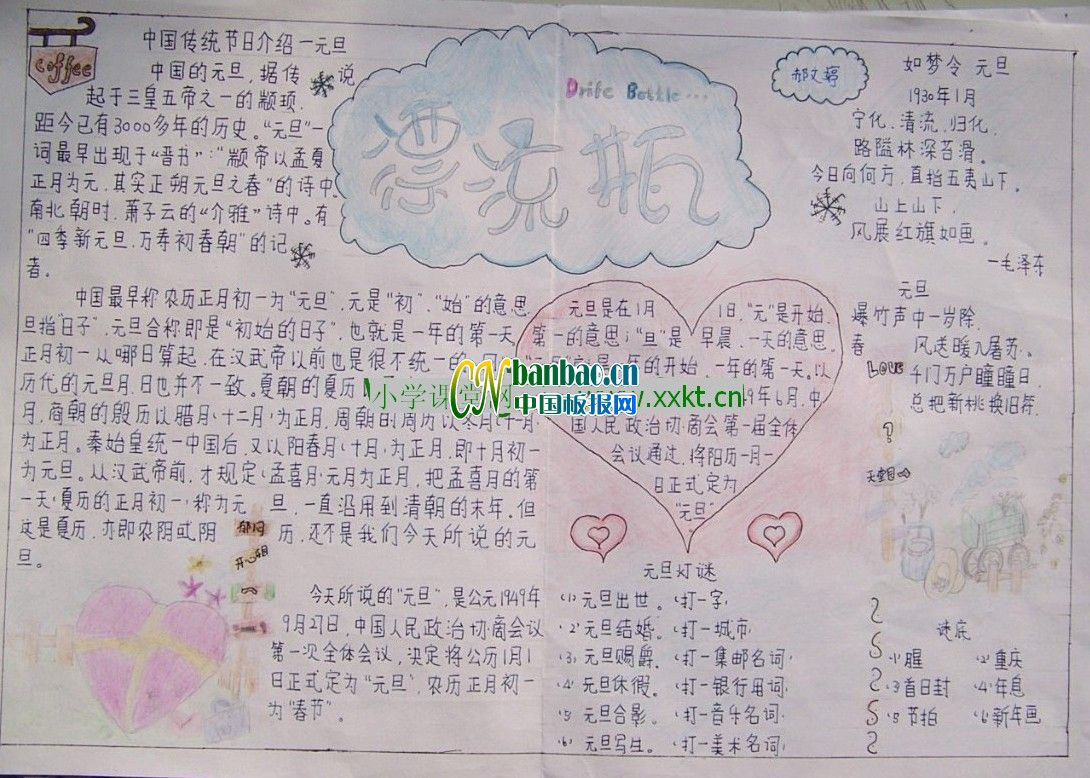 Coffee
中国传统节日介绍—元旦
中国的元旦，据传说
起于三皇五帝之一的颛顼，
距今已有3000多年的历史。"元旦"一
词最早出现于"晋书"："颛帝以孟夏
正月为元，其实正朔元旦之春"的诗中。
南北朝时，萧子云的"介雅"诗中。有
"四季新元旦，万寿初春朝"的记
者。
中国最早称农历正月初一为"元旦"，元是"初"、"始"的意思
旦指"日子"，元旦合称即是"初始的日子"，也就是一年的第一天
正月初一从哪日算起，在汉武帝以前也是很不统一的
历代的元旦月，日也并不一致。夏朝的夏历
月，商朝的殷历以腊月（十二月）为正月，周朝的周历以冬月（十一月）
为正月。秦始皇统一中国后，又以阳春月（十月）为正月，即十月初一
为元旦。从汉武帝前，才规定（孟喜月）元月为正月，把孟喜月的第
一天（夏历的正月初一）称为元旦，一直沿用到清朝的末年。但
这是夏历，亦即农阴或阴历，还不是我们今天所说的元
旦。
郁闷
开心明
今天所说的"元旦"，是公元1949年
9月27日，中国人民政治协商会议
第一次全体会议，决定将公历1月1
日正式定为"元旦"，农历正月初一
为"春节"。
Drife Bottle...
漂流瓶
元旦是在1月1日，"元"是开始，
第一的意思；"旦"是早晨，一天的意思。
年的开始，一年的第一天。以
49年6月，中
国人民政治协商会第一届全体
会议通过，将阳历一月一
日正式定为
"元旦"
小学课堂网 www.xxkt.cn
CN banbao.cn
中国板报网
元旦灯谜
（1）元旦出世。（打一字）
（2）元旦结婚。（打一城市）
（3）元旦赐爵。（打一集邮名词）
（4）元旦休假。（打一银行用词）
（5）元旦合影。（打一音乐名词）
（6）元旦写生。（打一美术名词）
郝文婷
如梦令 元旦
1930年1月
宁化、清流、归化，
路隘林深苔滑。
今日向何方，直指五夷山下。
山上山下，
风展红旗如画。
—毛泽东
元旦
爆竹声中一岁除，
春风送暖入屠苏。
千门万户曈曈日，
总把新桃换旧符。
Love
?
谜底
（1）腥 （2）重庆
（3）首日封 （4）年息
（5）节拍 （6）新年画